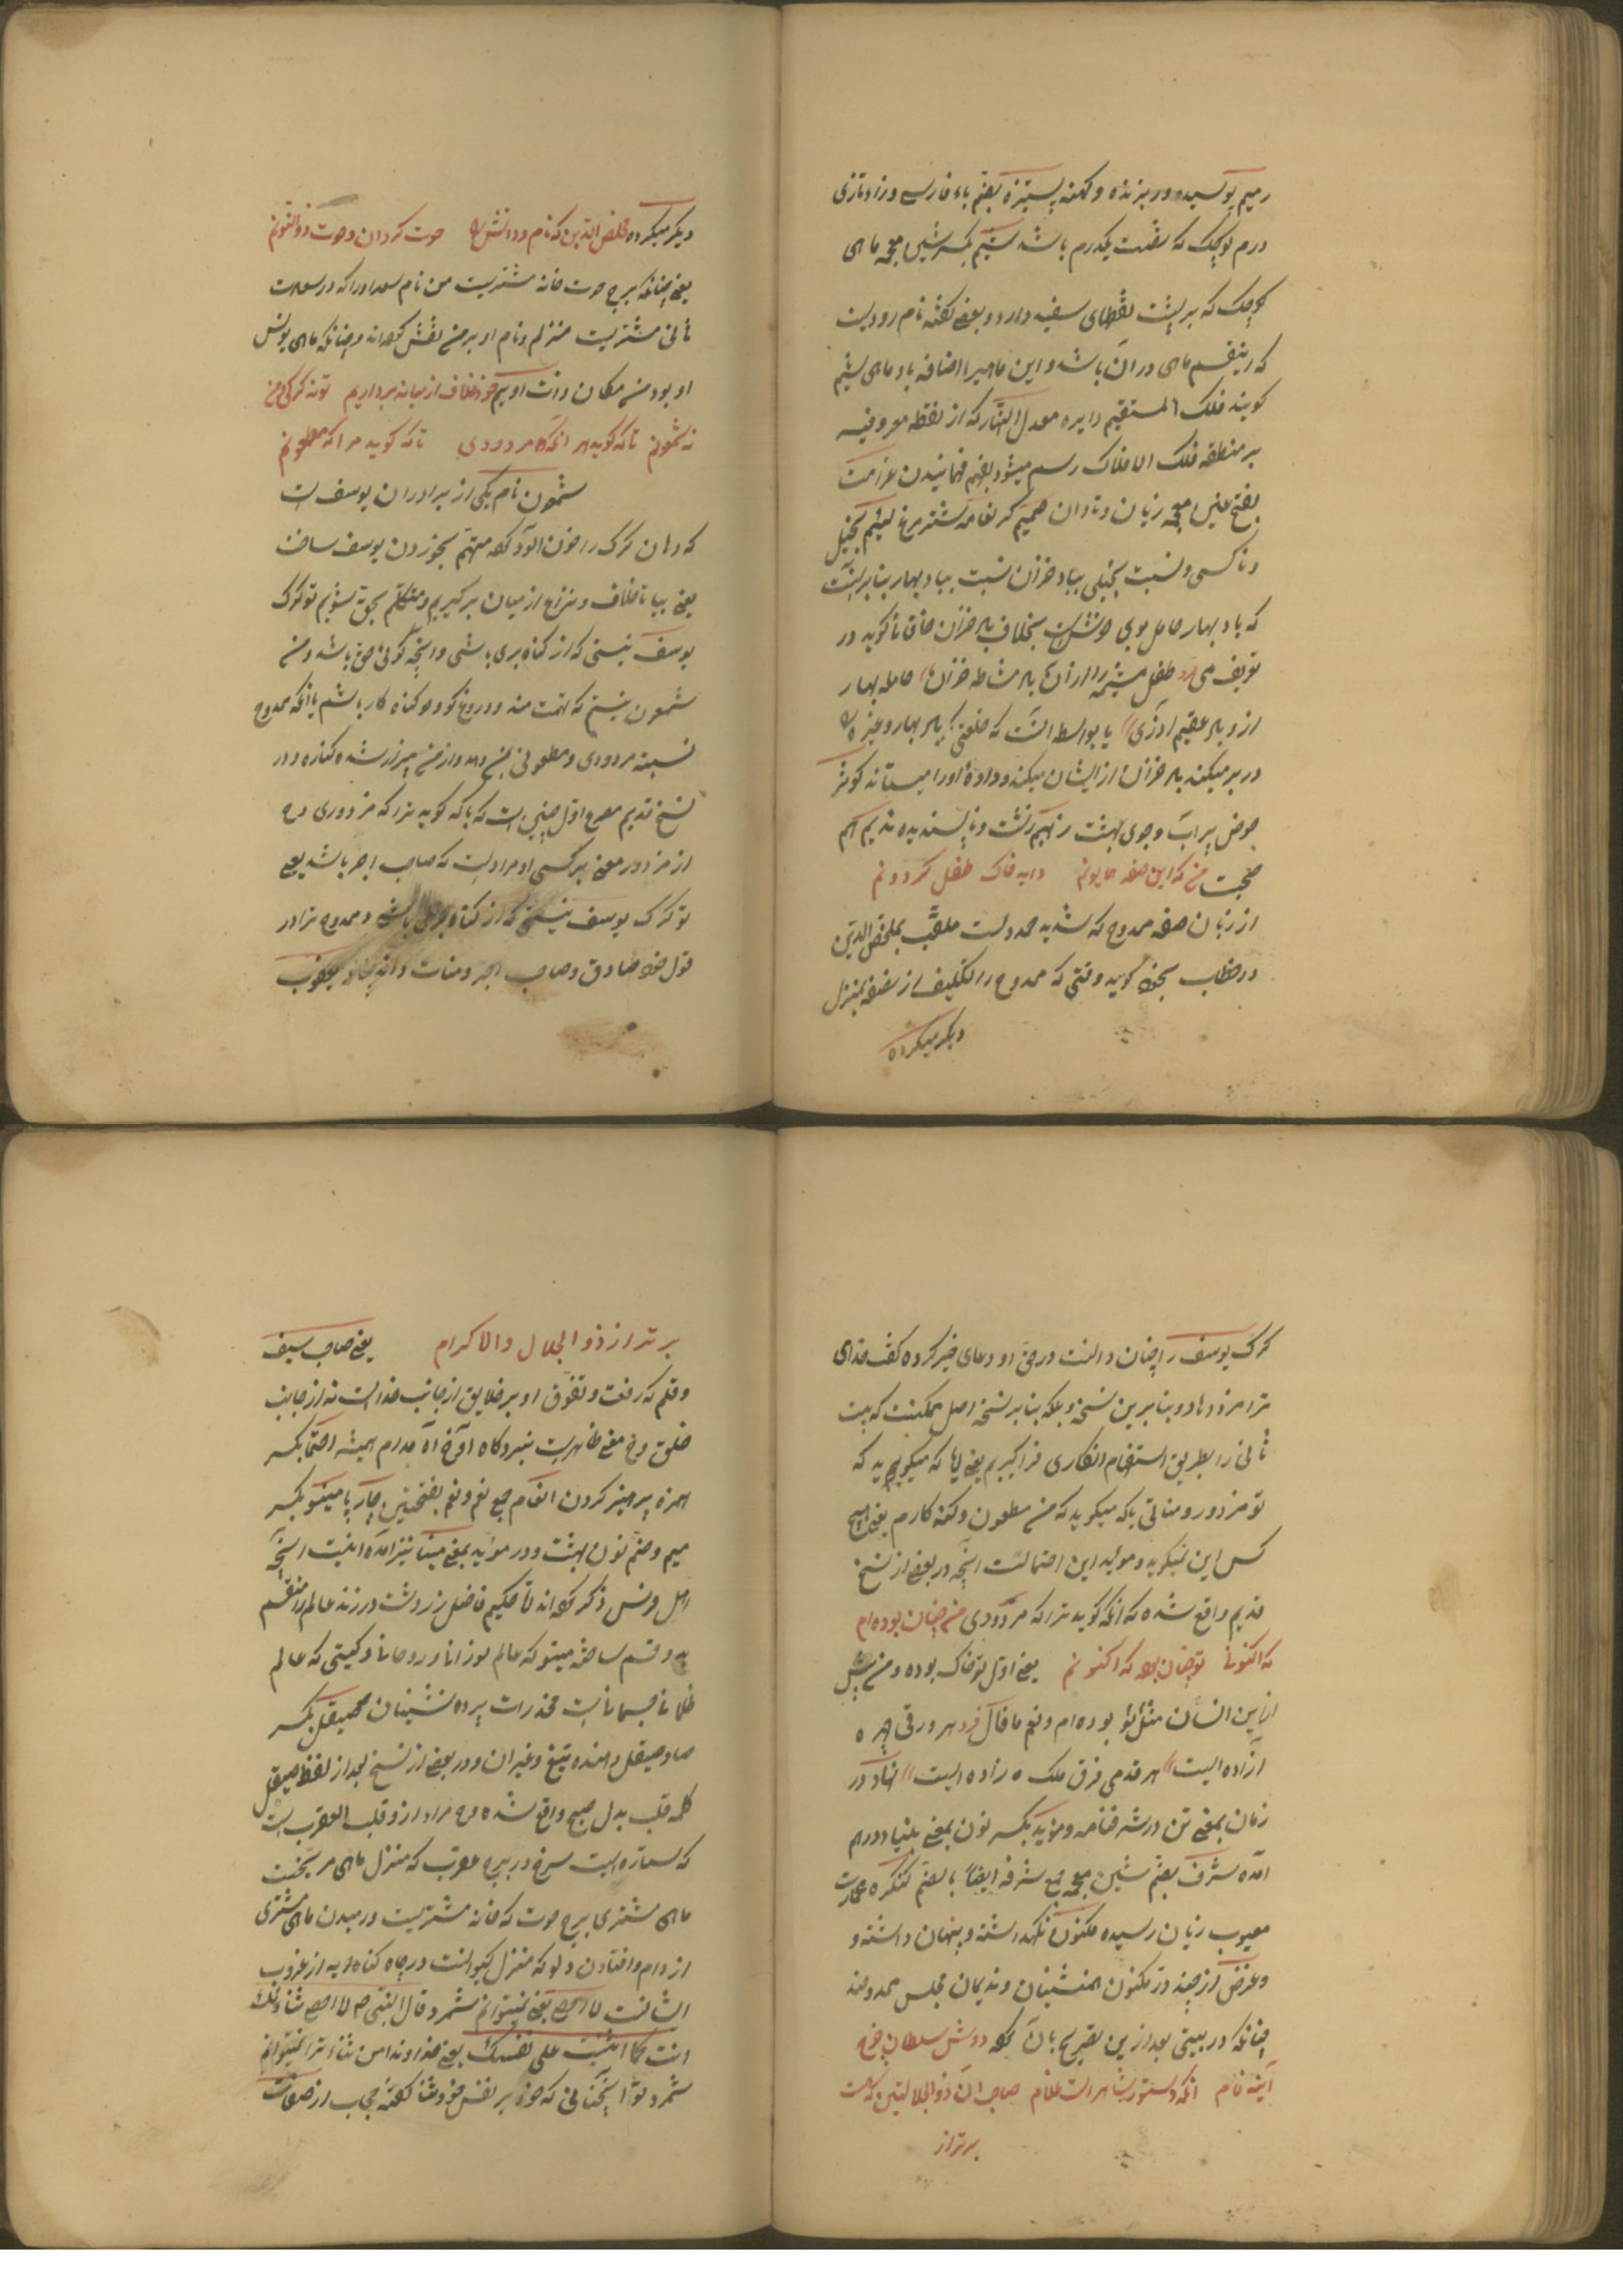 رمیم پوسیده و ریزنده و کهنه پشیزه بضم باء فارسی و زاء تازی
درم کوچک که بقیمت یکدرم باشد شیم بکسر شین معجمه ماهی
کوچک که بر پشت نقطهای سفید دارد و بعضی گفته نام رودیست
که اینقسم ماهی در آن باشد و این ماهیرا اضافه باو ماهی شیم
گویند فلک المستقیم دایره معدل النهار که از نقطه معروفیه
بر منطقه فلک الافلاک رسم میشود بفهم فهمانیدن غرامت
بفتح غین معجمه زیان و تاوان نعامه شترمرغ لئیم بخیل
و ناکسی و نسبت بخیلی بباد خزان نسبت بباد بهار بنابر آنست
که باد بهار حامل بوی خوش است بخلاف باد خزان خاقانی گوید در
تعریف می
از و باد عقیم آذری یا بواسطه آنست که خلعتی که باد بهار و غیره
در بر میکند باد خزان از ایشان میکند و داده او را میستاند کوثر
حوض پر آب و جوی بهشت زنیم زشت و ناپسندیده ندیم هم
صحبت من که این صفه همایونم دایه خاک طفل گردونم
از زبان صفه ممدوح که شدید محمد است ملقب بمخلص الدین
در خطاب بخود گوید وقتی که ممدوح را تکلیف از صفه بمنزل
دیگر میکرده
دیگر میکرده مخلص الدین که نام و دانش حوت گردان و حوت ذوالنونم
یعنی چنانکه برج حوت خانه مشتریست من نام سعد او را که در سعادت
ثانی مشتریست منزلم و نام او بر من نقش کرده اند و چنانکه ماهی یونس
او بود من مکان ذات اویم خود خلاف از میانه برداریم تو نه گرگی و من
نه شمعونم تا که گوید مر آنکه مردودی تا که گوید مرا که ملعونم
شمعون نام یکی از برادران یوسف است
که دهان گرگ را خون آلود کرده متهم بخوردن یوسف ساخت
یعنی بیا تا خلاف و نزاع از میان برگیریم و متکلم بحق شویم تو گرگ
یوسف نیستی که از گناه بری باشی و آنچه گوئی حق باشد و من
شمعون نیستم که تهمت منه و دروغ گو و گناه کار باشم یا آنکه ممدوح
نسبت مردودی و ملعونی بمن دهد و از من بیزار شده کناره و در
نسخ قدیم مصرع اول چنین است که تا که گوید ترا که مزدوری و ح
از مزدور معنی بر کسی او مراد است که صاحب اجر باشد یعنی
تو گرگ یوسف نیستی که از گناه بری باشی و ممدوح ترا در
قول خود صادق و صاحب اجر و منات داند چنانکه یعقوب
گرگ یوسف را چنان دانست در حق او دعای خیر کرده گفت خدای
ترا مزد دهاد و بنابرین نسخه و بلکه بنابر نسخه اصل ممکنست که بیت
ثانی را بطریق استفهام انکاری فراگیریم یعنی آیا که میگوید که
تو مزدور و مناتی یا که میگوید که من مطعون و گنه کارم یعنی هیچ
کس این نمیگوید و موید این احتمالست آنچه در بعضی از نسخ
قدیم واقع شده که آنکه گوید ترا که مردودی من چنان بوده ام
که اکنونی تو چنان بوده که اکنونم یعنی اول تو خاک بوده و من پیش
ازین انسان مثل تو بوده ام و نعم ما قال فرد هر ورقی چهره
آزاده ایست هر قدمی فرق ملک زاده ایست نهاد در
زمان بمعنی تن در شرفنامه و موید بکسر نون بمعنی بنیاد و رسم
آمده شرف بضم شین معجمه جمع شرفه ایضا بالضم کنگره عمارت
معیوب زیان رسیده مکنون نگهداشته و پنهان داشته و
و غرض از چند در مکنون همنشینان و ندیمان مجلس ممدوحند
چنانکه در بیتی بعد ازین تصریح بآن کرده دوش سلطان چرخ
آینه فام آنکه دستور شاهراست غلام صاحب آن ذوالجلالتین که هست
برتر از
برتر از ذوالجلال والاکرام یعنی صاحب سیف
و قلم که رفعت و تفوق او بر خلایق از جانب خداست نه از جانب
خلق و ح معنی ظاهرست نبردگاه آوخ آه مدام همیشه احتما بکسر
همزه پرهیز کردن انعام جمع نعم و نعم بفتحتین چارپا مینو بکسر
میم و ضم نون بهشت و در موید بمعنی مینا نیز آمده اینست آنچه
اهل فرس ذکر کرده اند تا حکیم فاضل زردشت در زند عالم را منقسم
بدو قسم ساخته مینو که عالم نورانی و روحانی و گیتی که عالم
ظلمانی جسمانیست مخدرات پرده نشینان صیقل بکسر
صاد صیقل دهنده تیغ و غیر آن و در بعضی از نسخ بعد از لفظ صیقل
کلمه قلب بدل صبح واقع شده و ح مراد از و قلب العقرب است
که ستاره ایست سرخ در برج عقرب که منزل ماهی مریخست
ماهی مشتری برج حوت که خانه مشتریست و رمیدن ماهی مشتری
از دام و افتادن دلو که منزل کیوانست در چاه کنایه از غروب
ایشانست لا احصی یعنی نمیتوانم شمرد و قال النبی ص لا احصی ثناء علیک
انت کما اثنیت علی نفسک یعنی خداوندا من ثناء ترا نمیتوانم
شمرد تو آنچنانی که خود بر نفس خود ثنا گفتهٔ حجاب از صفات